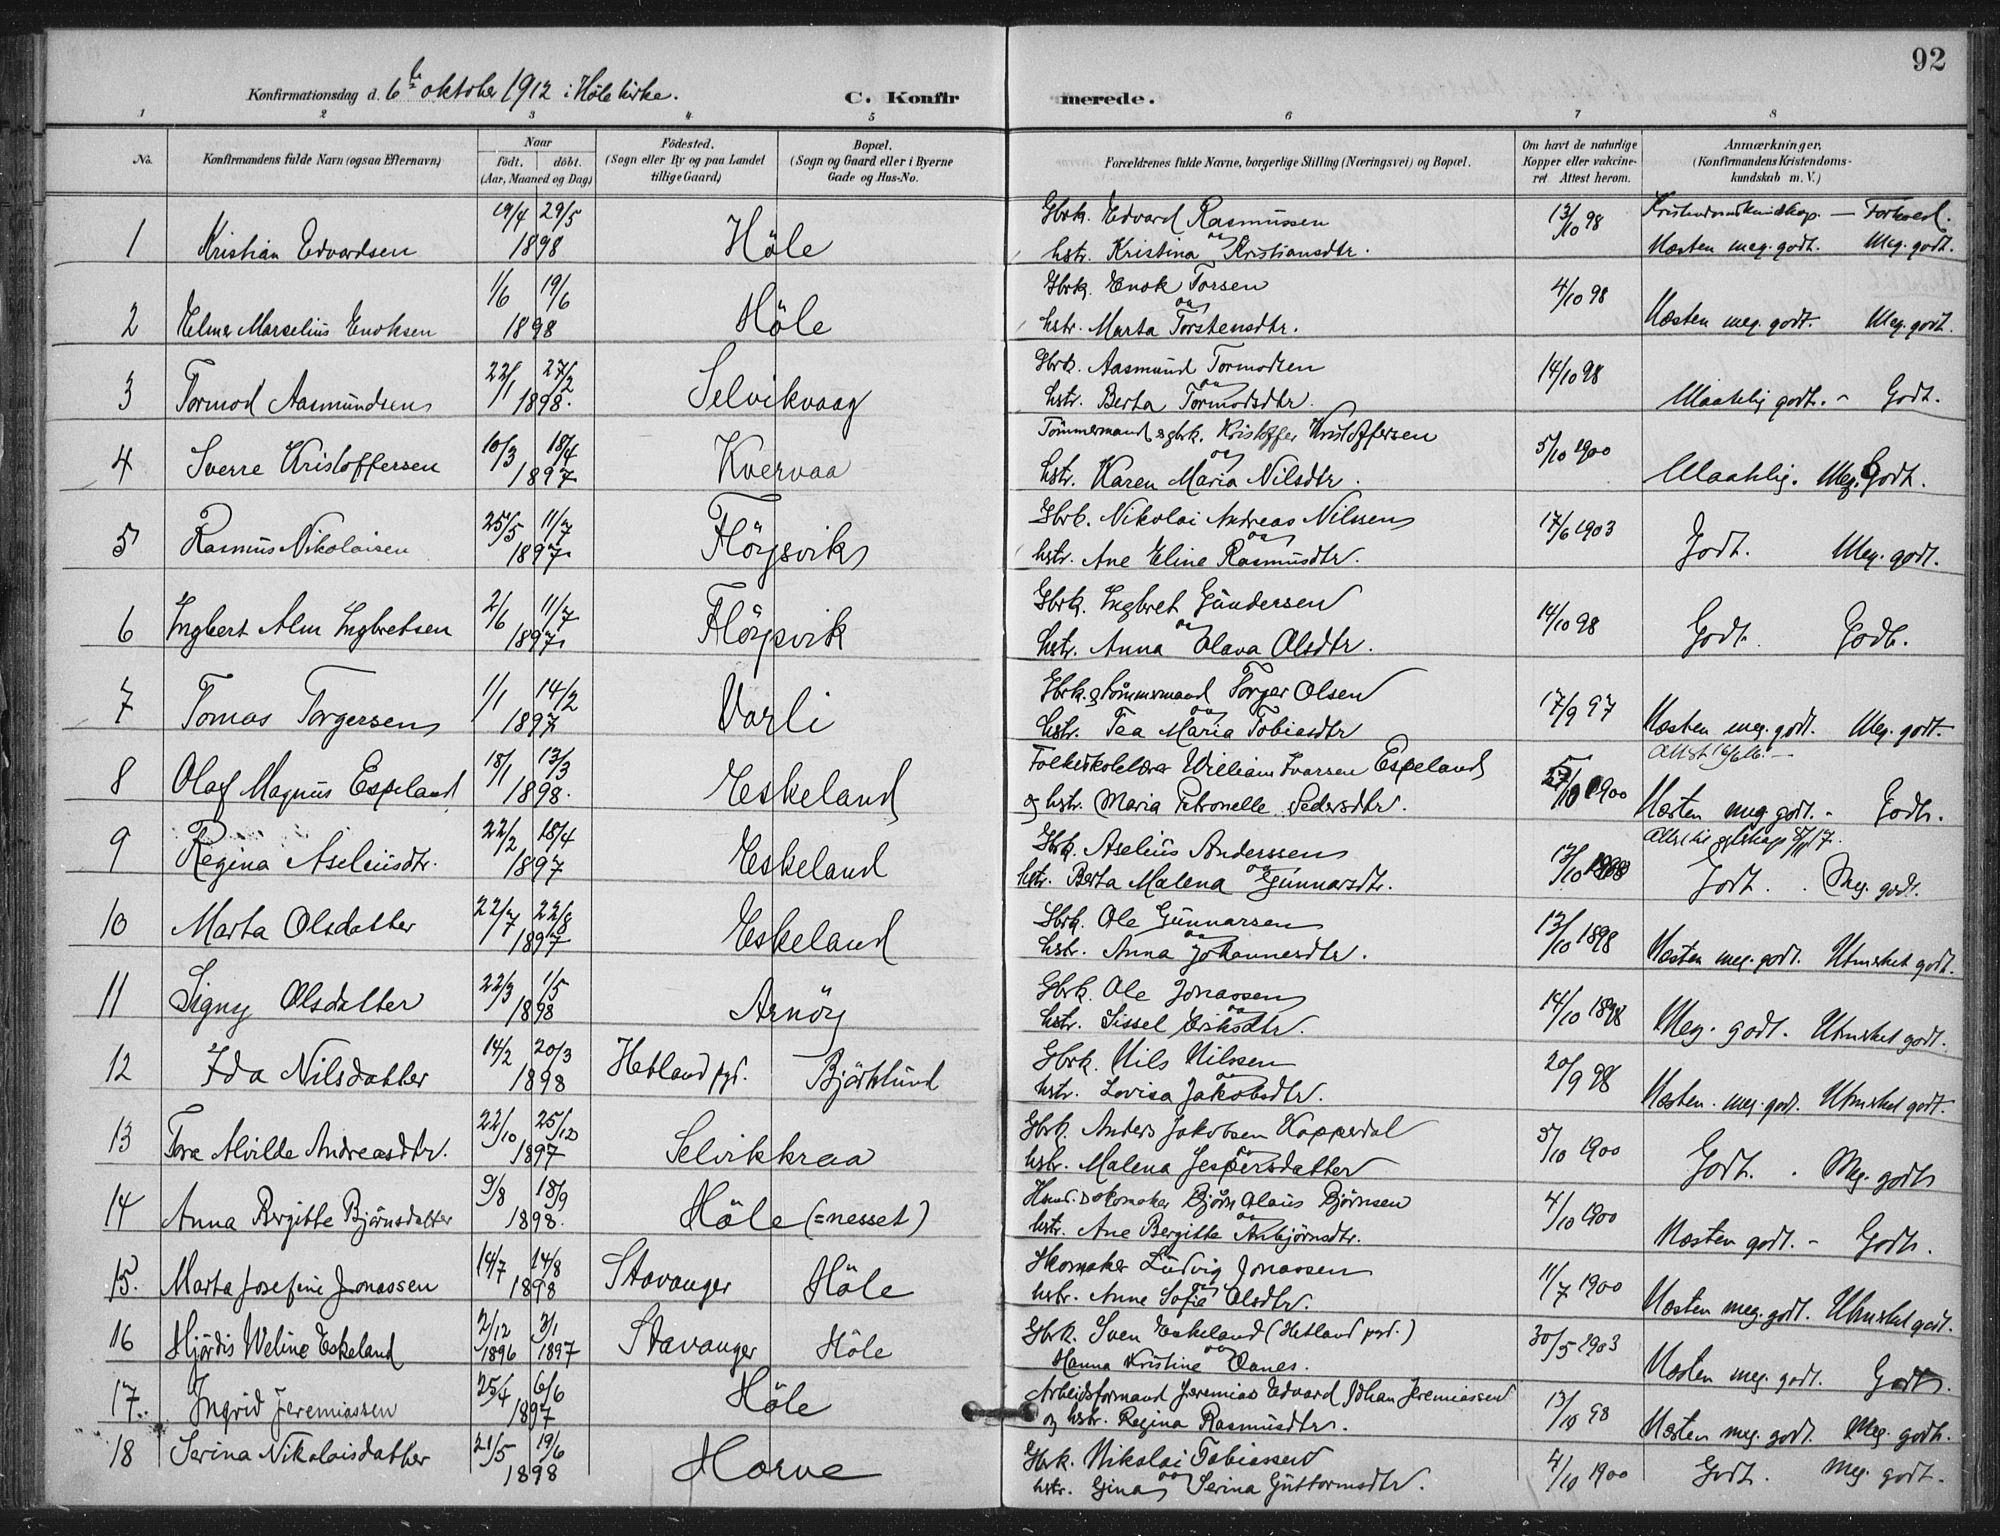 92
Konfirmationsdag d. 6te oktober 1912 i Høle kirke. C. Konfirmerede.
1 2 3 4 5 6 7 8
No. Konfirmandens fulde Navn (ogsaa Efternavn) Naar født. døbt. (Aar, Maaned og Dag) Fødested. (Sogn eller By og paa Landet tillige Gaard) Bopæl. (Sogn og Gaard eller i Byerne Gade og Hus-No. Forældrenes fulde Navne, borgerlige Stilling (Næringsvei) og Bopæl. Om havt de naturlige Kopper eller vakcineret. Attest herom. Anmærkninger, (Konfirmandens Kristendomskundskab m. V.)
19/4 29/5 Gbrk. Edvard Rasmussen 13/10 98 Kristendomskundskap. — Forhold.
1 Kristian Edvardsen 1898 Höle og hstr. Kristina Kristiansdtr. Næsten meg. godt. Meg. godt.
1/6 19/6 Gbrk. Enok Torsen 4/10 98
2 Elmer Marselius Enoksen 1898 Höle og hstr. Marta Torstensdtr. Næsten meg. godt. Meg. godt.
22/1 27/2 Gbrk. Aasmund Tormodsen 14/10 98
3 Tormod Aasmundsen 1898. Selvikvaag og hstr. Berta Tormodsdtr. Maatelig godt. - Godt.
10/3 18/4 Tömmermand & gbrk. Kristoffer Kristoffersen 5/10 1900
4 Sverre Kristoffersen 1897 Kvervaa og hstr. Karen Maria Nilsdtr. Maatelig. Meg. Godt.
25/5 11/7 Gbrk. Nikolai Andreas Nilssen 17/6 1903
5 Rasmus Nikolaisen 1897. Flöysvik og hstr. Ane Eline Rasmusdtr. Godt. Meg. godt.
2/6 11/7 Gbrk. Ingbret Gundersen 14/10 98
6 Ingbert Alm Ingbretsen 1897. Flöysvik og hstr. Anna Olava Olsdtr. Godt. Godt.
1/1 14/2 Gbrk. & tömmermand Torger Olsen 17/9 97
7 Tomas Torgersen 1897 Varli og hstr. Tea Maria Tobiasdtr Næsten meg. godt. Meg. godt.
18/1 13/3 Folkeskolelærer William Ivarsen Espeland 1900 Attest 16/6 16. -
8 Olaf Magnus Espeland 1898. Eskeland og hstr. Maria Petronelle Pedersdtr. Næsten meg godt. - Godt.
22/2 18/4 Gbrk. Aselius Anderssen 13/10 1898 Attest 17.
9 Regina Aseliusdtr. 1897 Eskeland og hstr. Berta Malena Gunnarsdtr. Godt. Meg. godt.
22/7 22/8 Gbrk. Ole Gunnarsen 13/10 1898
10 Marta Olsdatter 1897 Eskeland og hstr. Anna Johannesdtr. Næsten meg. godt. Utmerket godt.
22/3 1/5 Gbrk. Ole Jonassen 14/10 1898
11 Signy Olsdatter 1898 Arnöy og hstr. Sissel Eriksdtr. Meg. godt. Utmerket godt.
14/2 20/3 Gbrk. Nils Nilssen 20/9 98
12 Ida Nilsdatter 1898 Hetland pgd. Björklund og hstr. Lovisa Jakobsdtr. Næsten meg. godt. Utmerket godt.
22/10 25/12 Gbrk. Anders Jakobsen Kopperdal 5/10 1900
13 Tora Alvilde Andreasdtr. 1897 Selvikkraa og hstr. Malena Jespersdatter Godt. Meg. godt
9/8 18/9 Husm. & skomaker Bjørn Olaus Bjørnsen 4/10 1900
14 Anna Bergitte Björnsdatter 1898. Höle (=nesset) og hstr. Ane Bergitte Asbjørnsdtr. Næsten godt. - Godt.
14/7 14/8 Skomaker Ludvig Jonassen 11/7 1900
15. Marta Josefine Jonassen 1898 Stavanger Höle og hstr. Anne Sofie Olsdtr. Næsten meg. godt. Utmerket godt.
2/12 3/1 Gbrk. Sven Eskeland (Hetland pgd.) 30/5 1903
16 Hjördis Weline Eskeland 1896 1897 Stavanger Höle og Hanna Kristine Oanes. Næsten meg. godt. Godt.
25/4 6/6 Arbeidsformand Jeremias Edvard Johan Jeremiassen 13/10 98
17. Ingrid Jeremiassen 1897 Höle og hstr. Regina Rasmusdtr. Næsten meg. godt. Meg. godt.
21/5 19/6 Gbrk. Nikolai Tobiassen 4/10 1900
18 Serina Nikolaisdatter 1898 Horve og hstr. Gina Serina Guttormsdtr. Godt. Meg. godt.